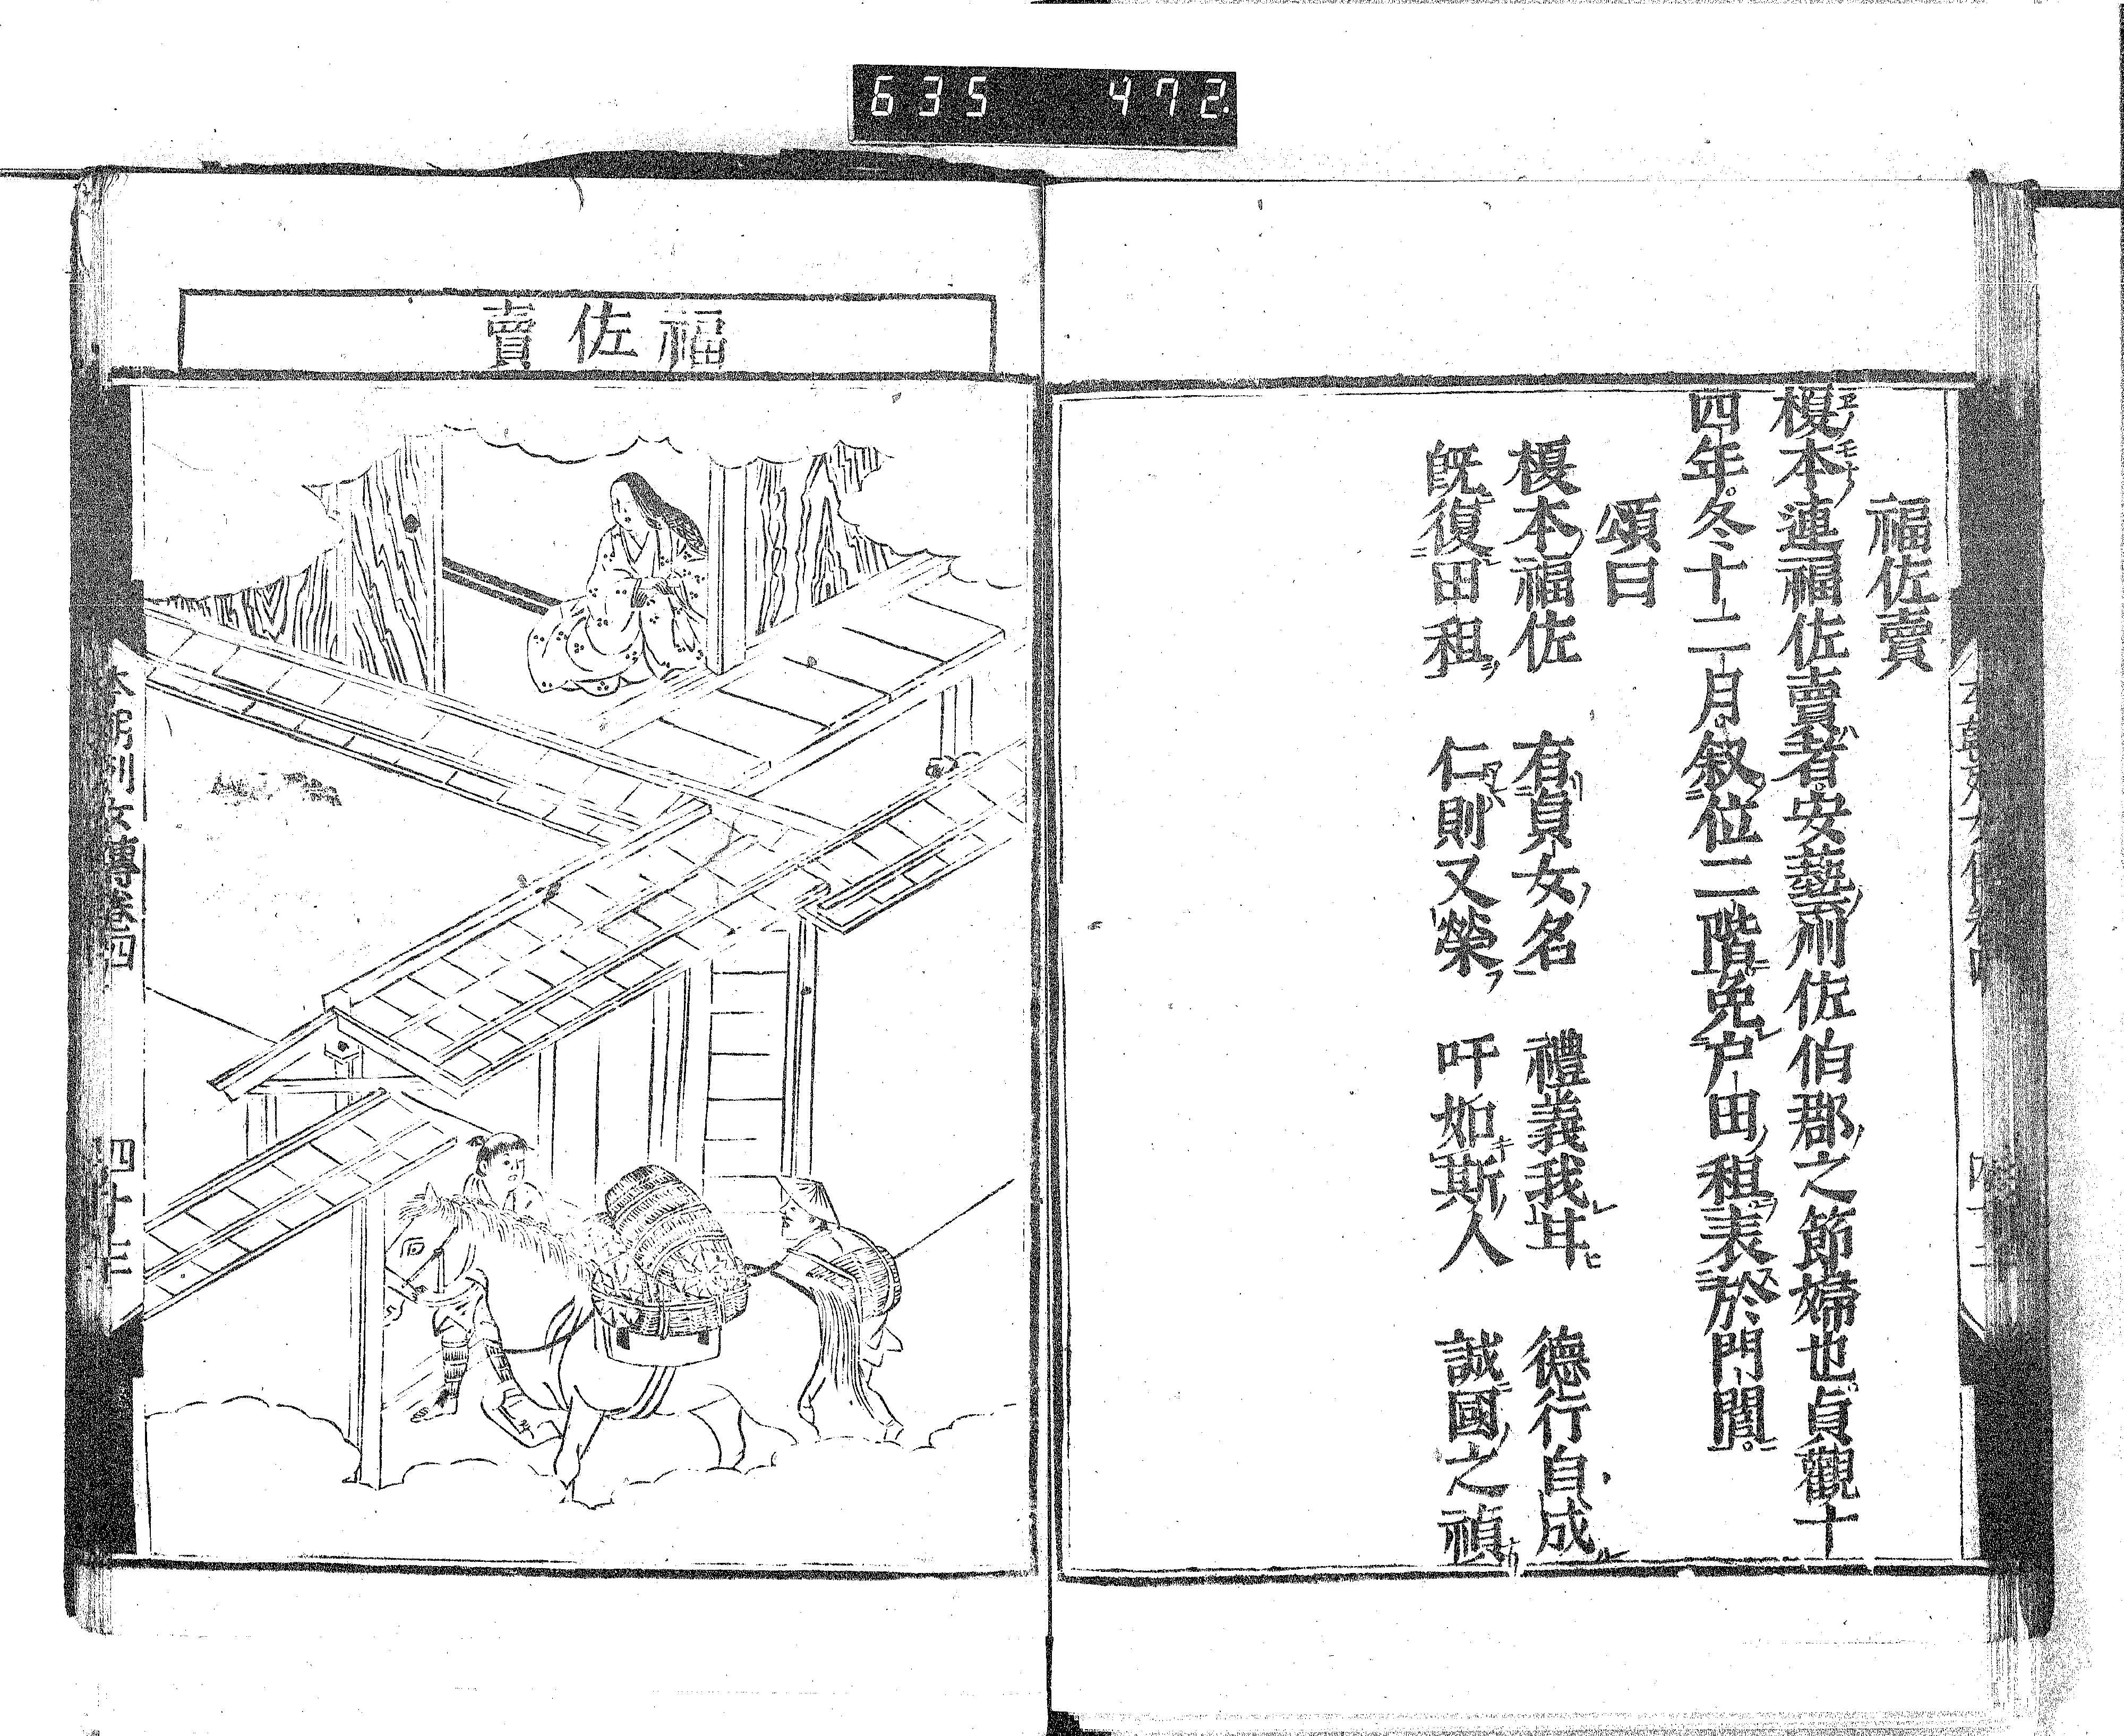 635 472
福佐賣
榎本連福佐賣者安藝州佐伯郡之節婦也貞觀十
四年冬十二月叙位二階免戸田租表於門閭
頌曰
榎本福佐 有貞女名 禮義我耳 德行自成
既復田租 仁則又榮 吁如斯人 誠國之禎
福佐賣
本朝列女傳卷四 四十三